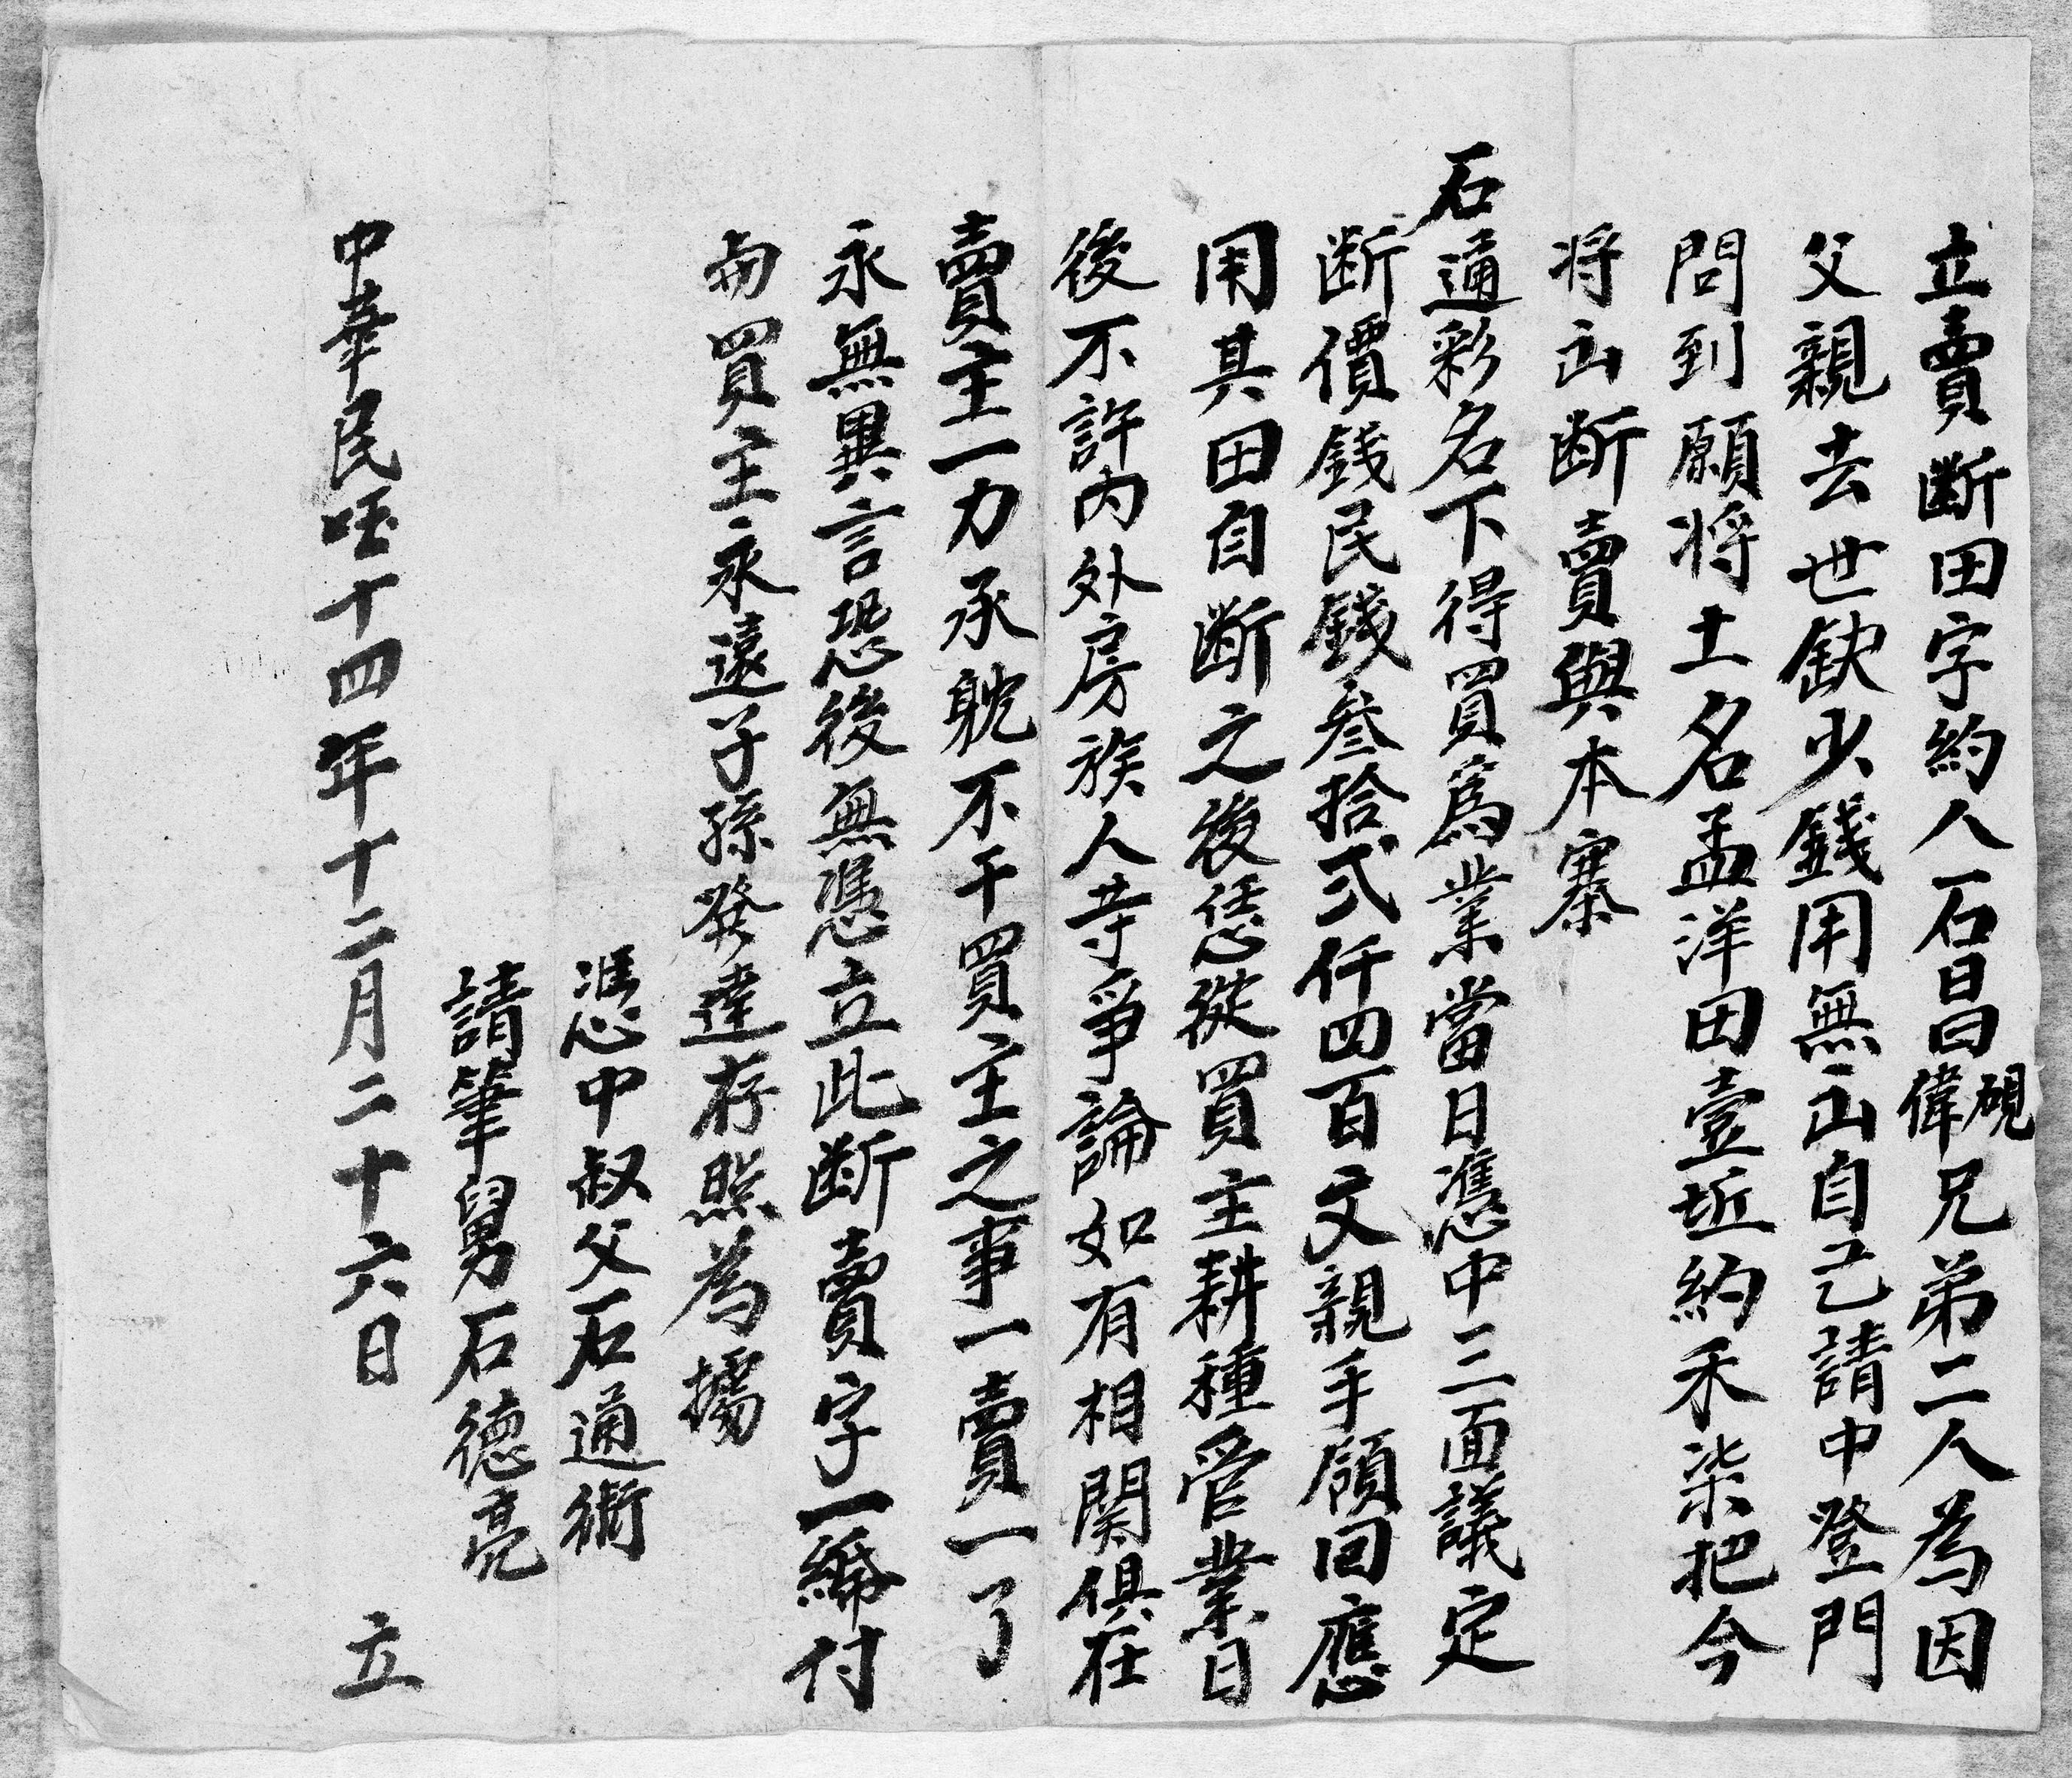 立賣断田字約人石昌硯偉兄弟二人為因
父親去世缺少錢用無出自己請中登門
問到願将土名孟洋田壹坵約禾柒把今
将出断賣與本寨
石通彩名下得買為業當日憑中三面議定
断價錢民錢叁拾弍仟四百文親手領回應
用其田自断之後恁從買主耕種管業日
後不許内外房族人等爭論如有相関俱在
賣主一力承躭不干買主之事一賣一了
永無異言恐後無憑立此断賣字一紙付
與買主永遠子孫發達存照為據
憑中叔父石通術
請筆舅石德亮
中華民囯十四年十二月二十六日 立